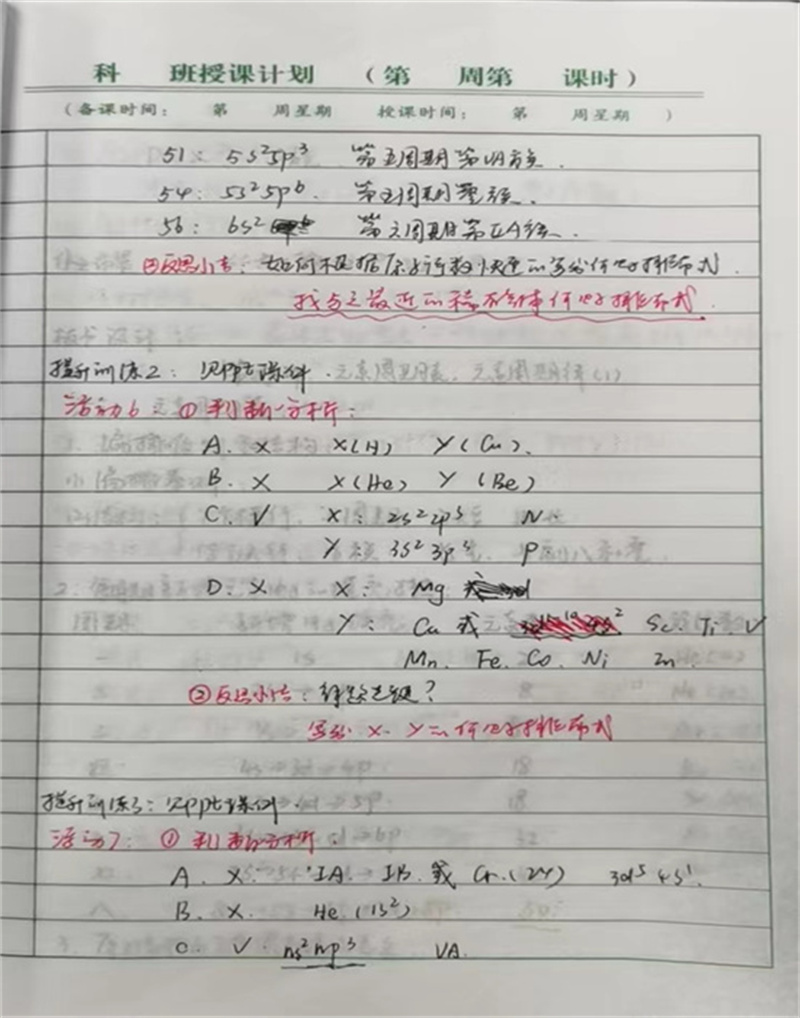 科 班授课计划 (第 周第 课时)
(备课时间: 第 周星期 授课时间: 第 周星期 )
51: 5s²5p³ 第五周期第VA族.
54: 5s²5p⁶. 第五周期零族.
56: 6s² 第六周期第ⅡA族.
②反思小结: 如何根据原子序数快速的写出价电子排布式.
找与之最近的稀有气体价电子排布式.
提升训练2: 见PPt课件.
活动6 ①判断分析:
A. × X(H) Y(Cu).
B. × X(He) Y(Be)
C. √ X: 2s²2p³ N
Y 3s²3p³ P
D. × X: Mg
Y: Ca 或 Sc. Ti. V
Mn. Fe. Co. Ni Zn.
②反思小结: 解题关键?
写出 X. Y的价电子排布式
提升训练3: 见PPt课件.
活动7: ①判断分析.
A. ×. ⅠA. ⅠB. 或 Cr.(24) 3d⁵4s¹.
B. ×. He.(1s²)
C. √. ns²np³ VA.